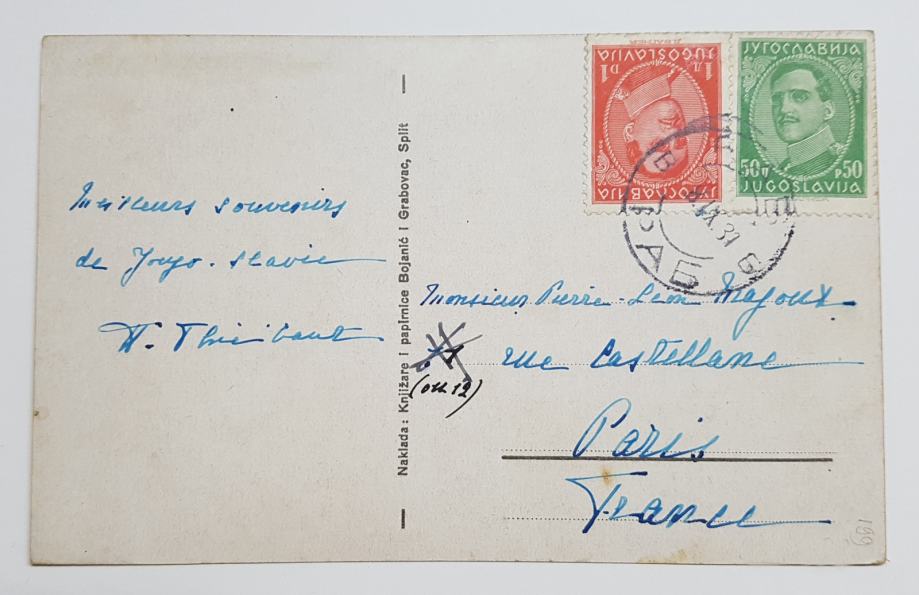 Meilleurs souvenirs
de Yougo-slavie
H. Thiébaut
Naklada: Knjižare i papirnice Bojanić i Grabovac, Split
1 Д. 1 D
JUGOSLAVIJA
ЈУГОСЛАВИЈА
ЈУГОСЛАВИЈА
50 p 50
JUGOSLAVIJA
РАБ
Monsieur Pierre-Léon
(ou 12)
rue Castellane
Paris
France
199